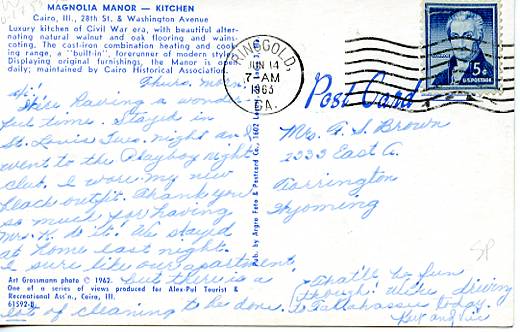 MAGNOLIA MANOR — KITCHEN
Cairo, Ill., 28th St. & Washington Avenue
Luxury kitchen of Civil War era, with beautiful alter-
nating natural walnut and oak flooring and wains-
coting. The cast-iron combination heating and cook-
ing range, a "built-in", forerunner of modern style.
Displaying original furnishings, the Manor is open
daily; maintained by Cairo Historical Association.
Thurs. morn.
Hi!
We're having a wonder-
ful time. Stayed in
St. Louis Tues. night and
went to the Playboy Night
club. I wore my new
black outfit. Thank you
so much for having
Mrs. K. do it! We stayed
at home last night.
I sure like our apartment.
but there is a
lot of cleaning to be done.
That'll be fun
though! We're driving
to Tallahassee today.
Art Grossmann photo © 1962.
One of a series of views produced for Alex-Pul Tourist &
Recreational Ass'n., Cairo, Ill.
61592-B
Pub. by Argro Foto & Postcard Co., 1602
RINGGOLD,
JUN 14
7-AM
1963
GA.
5¢
U.S. POSTAGE
Post Card
Mrs. A. S. Brown
2333 East A.
Torrington
Wyoming
SP